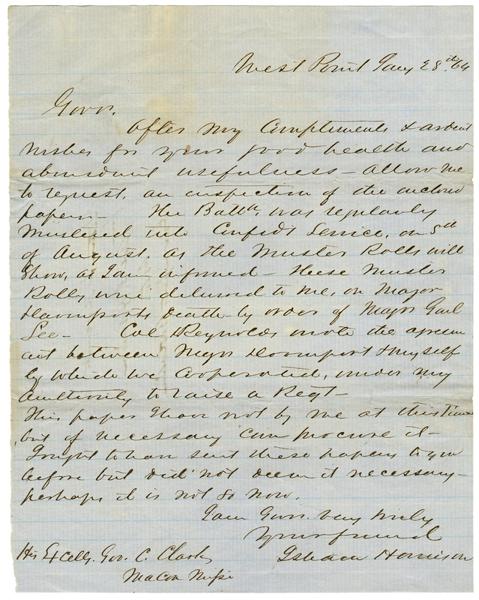 West Point Jany 28th 64
Govr.
After my Compliments & ardent
wishes for your good health and
abundant usefulness - allow me
to request, an inspection of the enclosed
papers - The Battn. was regularly
Mustered into Confedt Service, on 5th
of August, as the Muster Rolls will
Show, as I am informed - these Muster
Rolls were delivered to me, on Major
Davenports death by order of Major Genl
Lee - Col Reynolds wrote the agreem
ent between Major Davenport & myself
by which we Cooperated, under my
authority to raise a Regt -
This paper I have not by me at this time
but if necessary can procure it -
I ought to have sent these papers to you
before but did not deem it necessary -
perhaps it is not so now.
I am Govr. very truly
Your friend
Isham Harrison
His Excelly. Gov. C. Clark
Macon Missi